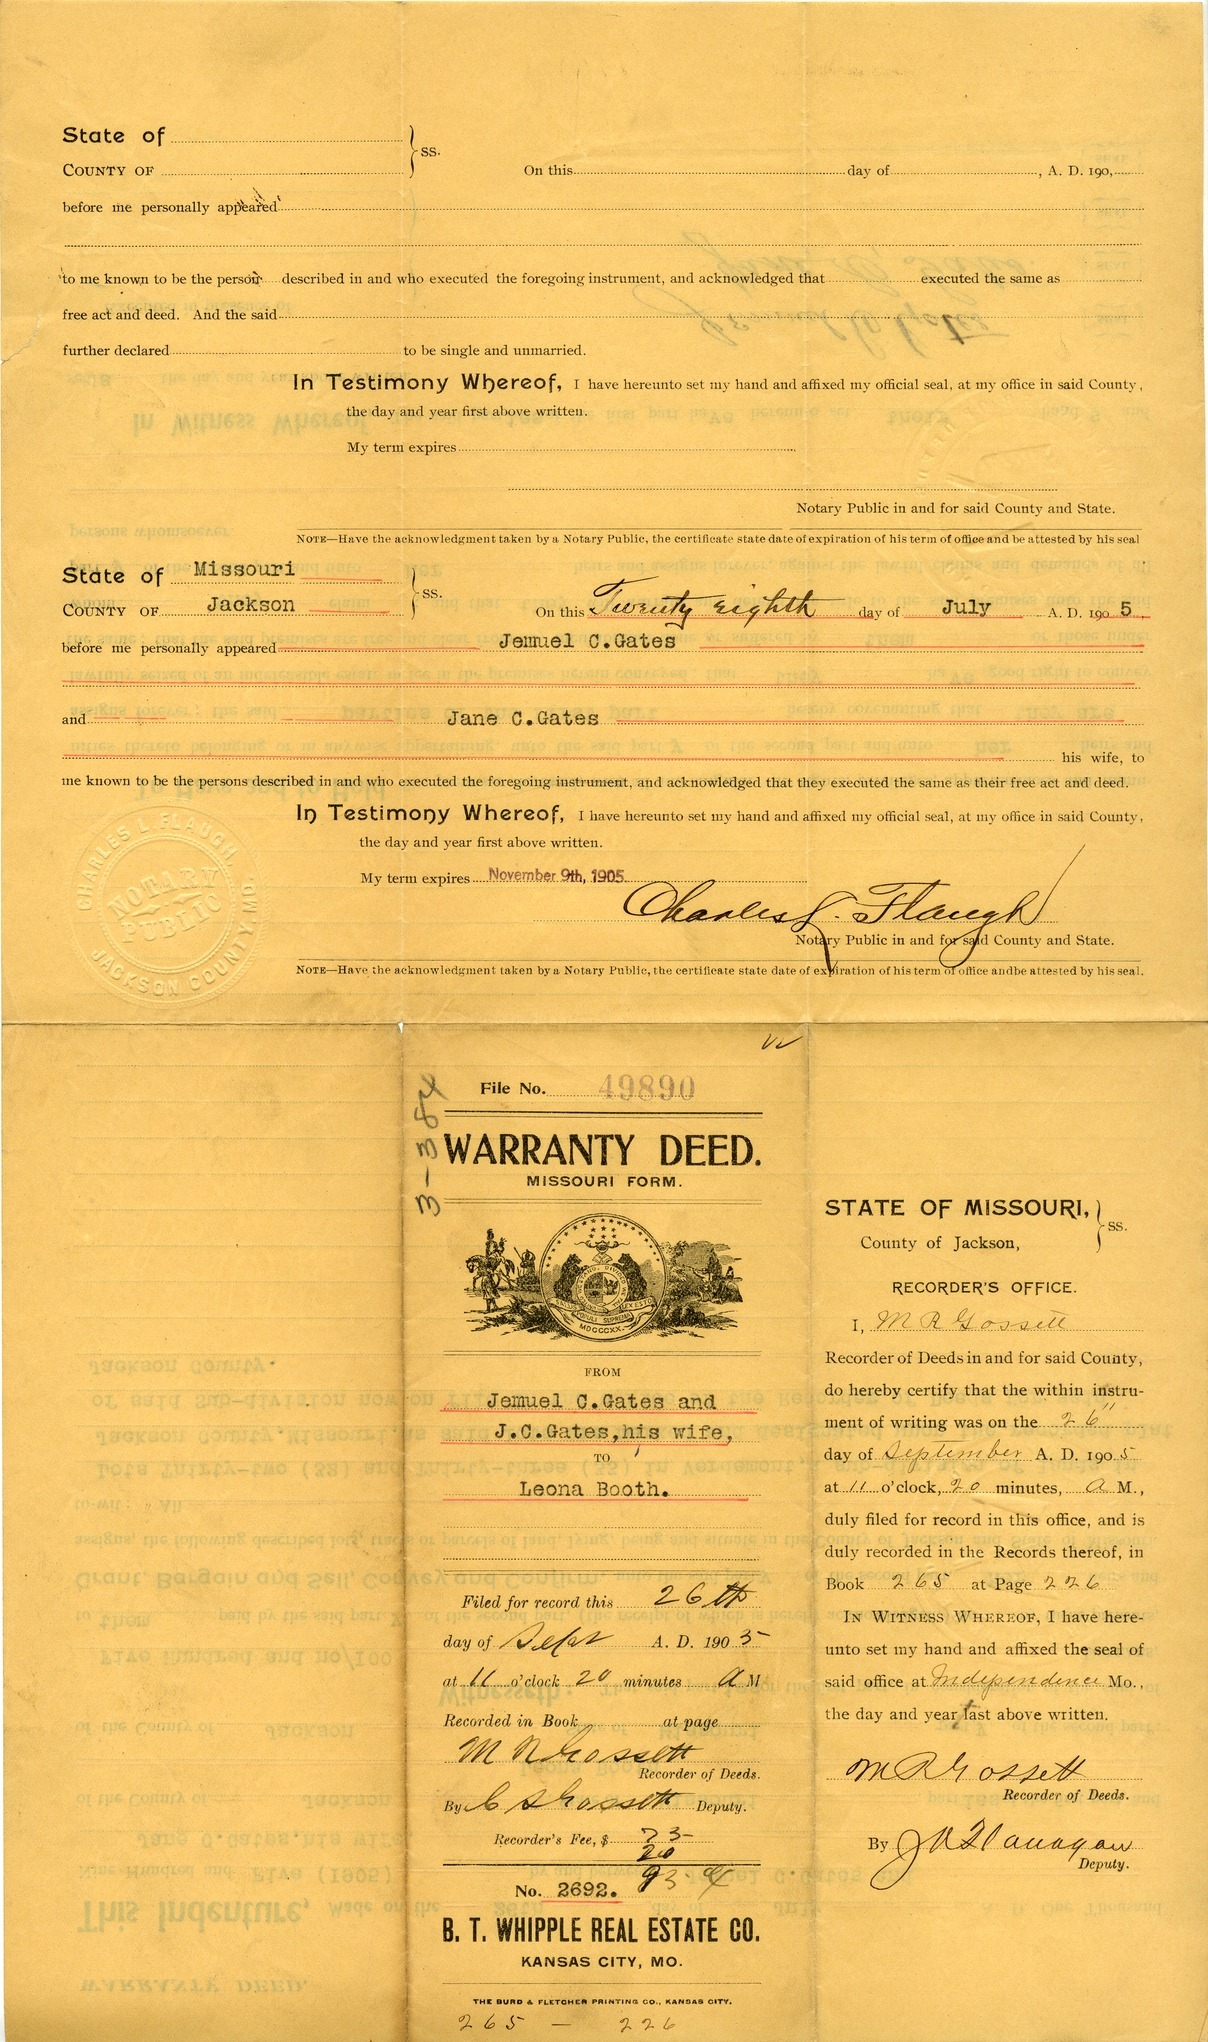 State of
COUNTY OF
} ss.
On this day of , A. D. 190,
before me personally appeared
to me known to be the person described in and who executed the foregoing instrument, and acknowledged that executed the same as
free act and deed. And the said
further declared to be single and unmarried.
In Testimony Whereof, I have hereunto set my hand and affixed my official seal, at my office in said County,
the day and year first above written.
My term expires
Notary Public in and for said County and State.
NOTE—Have the acknowledgment taken by a Notary Public, the certificate state date of expiration of his term of office and be attested by his seal
State of Missouri
COUNTY OF Jackson
} ss.
On this Twenty eighth day of July A. D. 190 5
before me personally appeared Jemuel C.Gates
and Jane C.Gates
his wife, to
me known to be the persons described in and who executed the foregoing instrument, and acknowledged that they executed the same as their free act and deed.
In Testimony Whereof, I have hereunto set my hand and affixed my official seal, at my office in said County,
the day and year first above written.
My term expires November 9th, 1905
Charles L. Flaugh
Notary Public in and for said County and State.
NOTE—Have the acknowledgment taken by a Notary Public, the certificate state date of expiration of his term of office andbe attested by his seal.
CHARLES L FLAUGH,
NOTARY
PUBLIC
JACKSON COUNTY, MO.
File No. 49890
WARRANTY DEED.
MISSOURI FORM.
MDCCCXX.
FROM
Jemuel C.Gates and
J.C.Gates,his wife,
TO
Leona Booth.
Filed for record this 26th
day of Sept A. D. 190 5
at 11 o'clock 20 minutes A M
Recorded in Book at page
M R Gossett
Recorder of Deeds.
By C S Gossett Deputy.
Recorder's Fee, $ 75
20
95
No. 2692.
B. T. WHIPPLE REAL ESTATE CO.
KANSAS CITY, MO.
THE BURD & FLETCHER PRINTING CO., KANSAS CITY.
265 — 226
STATE OF MISSOURI,
County of Jackson,
} ss.
RECORDER'S OFFICE.
I, M R Gossett
Recorder of Deeds in and for said County,
do hereby certify that the within instru-
ment of writing was on the 26"
day of September A. D. 190 5
at 11 o'clock, 20 minutes, A M.,
duly filed for record in this office, and is
duly recorded in the Records thereof, in
Book 265 at Page 226
IN WITNESS WHEREOF, I have here-
unto set my hand and affixed the seal of
said office at Independence Mo.,
the day and year last above written.
M R Gossett
Recorder of Deeds.
By J A Flanagan
Deputy.